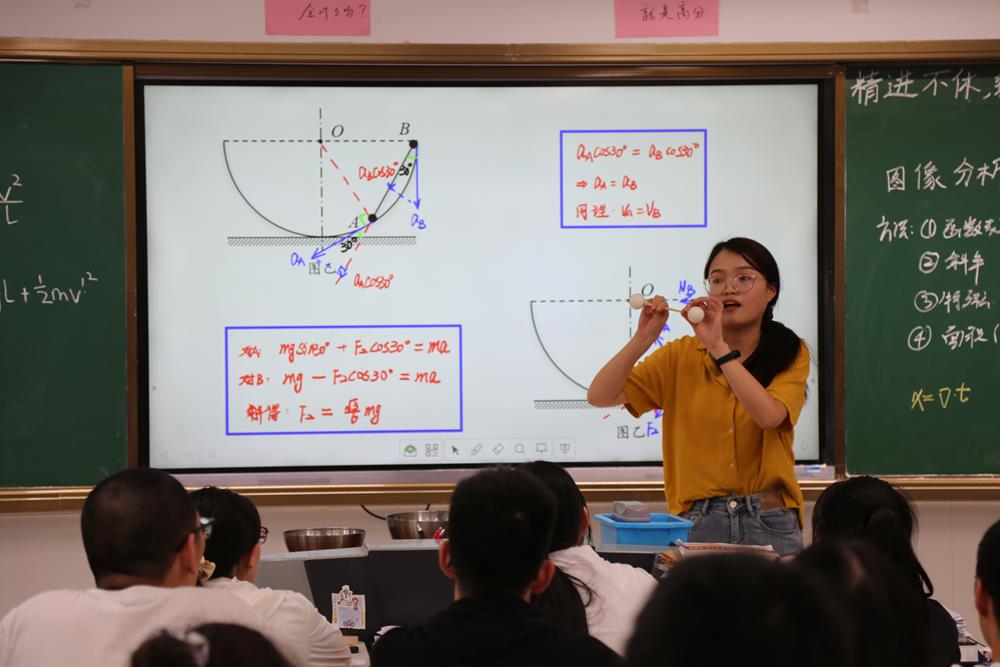 全对了吗?
就是高分
精进不休,
v²/L
L + ½mv'²
O
B
aBcos30°
30°
A
aB
30°
aA
图乙
aAcos30°
aAcos30° = aBcos30°
⇒ aA = aB
同理: vA = vB
对A: mgsin30° + F₂cos30° = ma
对B: mg − F₂cos30° = ma
解得: F₂ = √3/6 mg
O
NB
图乙
F₂
图像分析
方法: ① 函数表
② 斜率
③
④ 面积